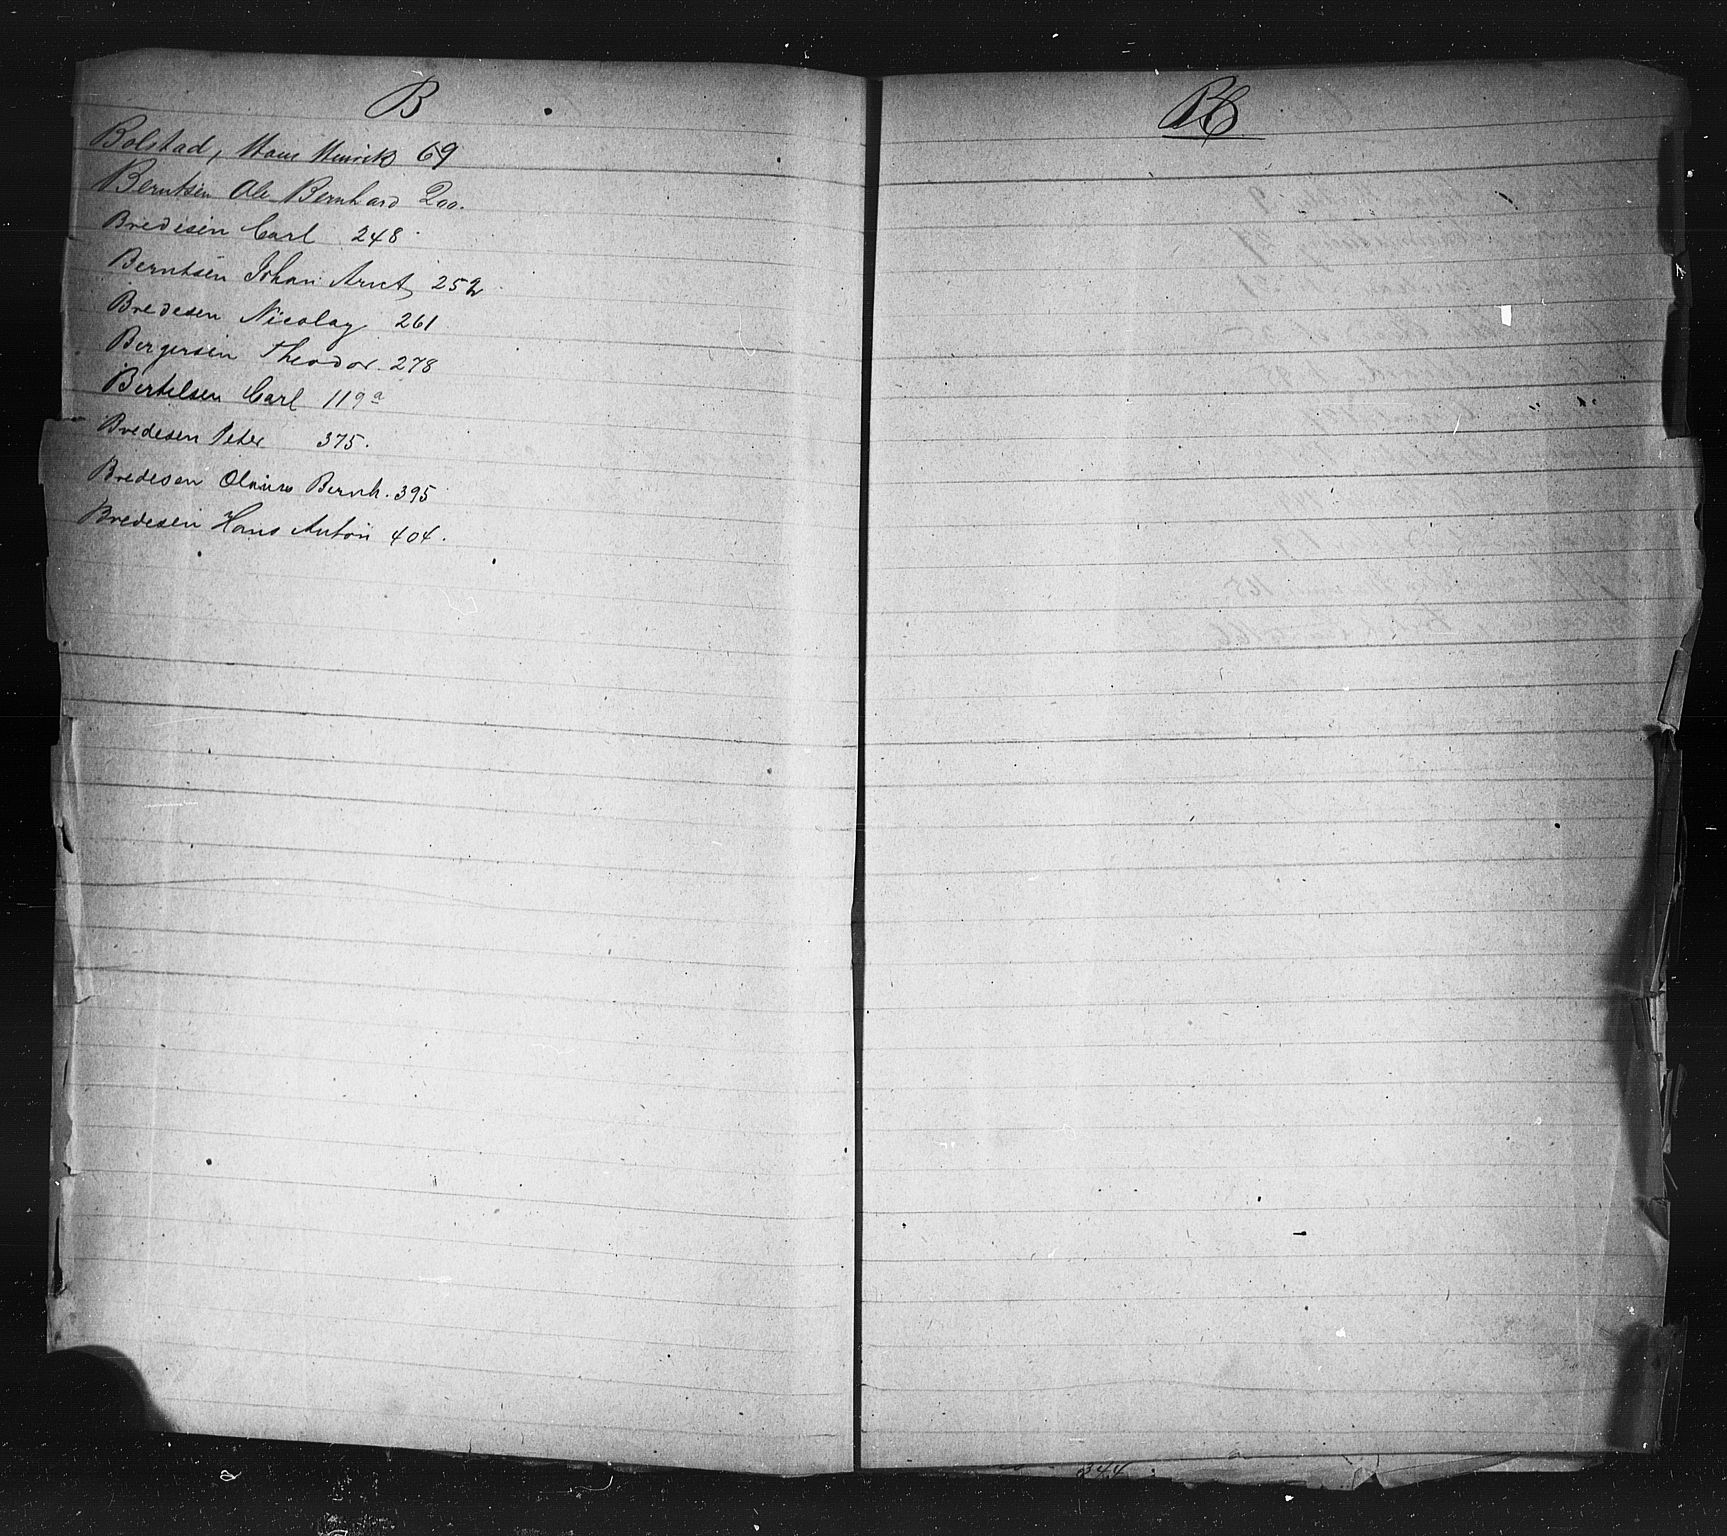 B
Bolstad, Hans Henrik 69
Berntsen Ole Bernhard 200.
Bredesen Carl 248
Berntsen Johan Arnt 252
Bredesen Nicolay 261
Bergersen Theodor 278
Bertelsen Carl 119a
Bredesen Peter 375.
Bredesen Bernh. 395
Bredesen Hans Anton 404.
344